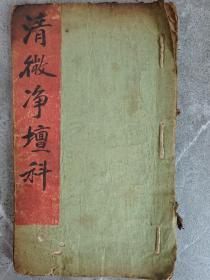 清微净壇科